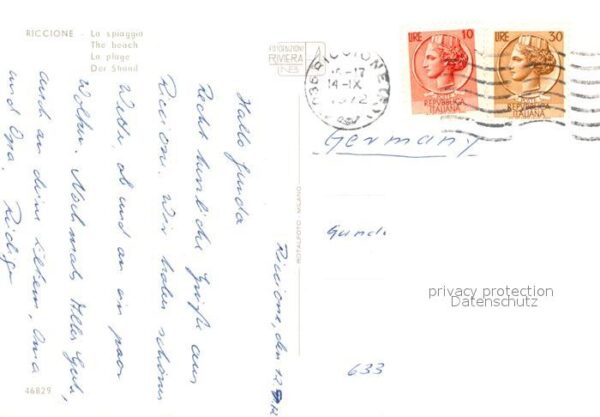 RICCIONE - La spiaggia
The beach
La plage
Der Strand
FOTOEDIZIONI
RIVIERA
RICCIONE
16-17
14-IX
1972
LIRE 10
REPVBBLICA
ITALIANA
LIRE 30
REPVBBLICA
ITALIANA
Riccione, den 12.9.72
Hallo Gunda
Recht herzliche Grüße aus
Riccione. Wir haben schönes
Wetter, ab und an ein paar
Wolken. Nochmals Alles Gute,
auch an deine Eltern, Oma
und Opa. Rüdiger
Germany
Gunda
privacy protection
Datenschutz
633
ROTALFOTO MILANO
46829